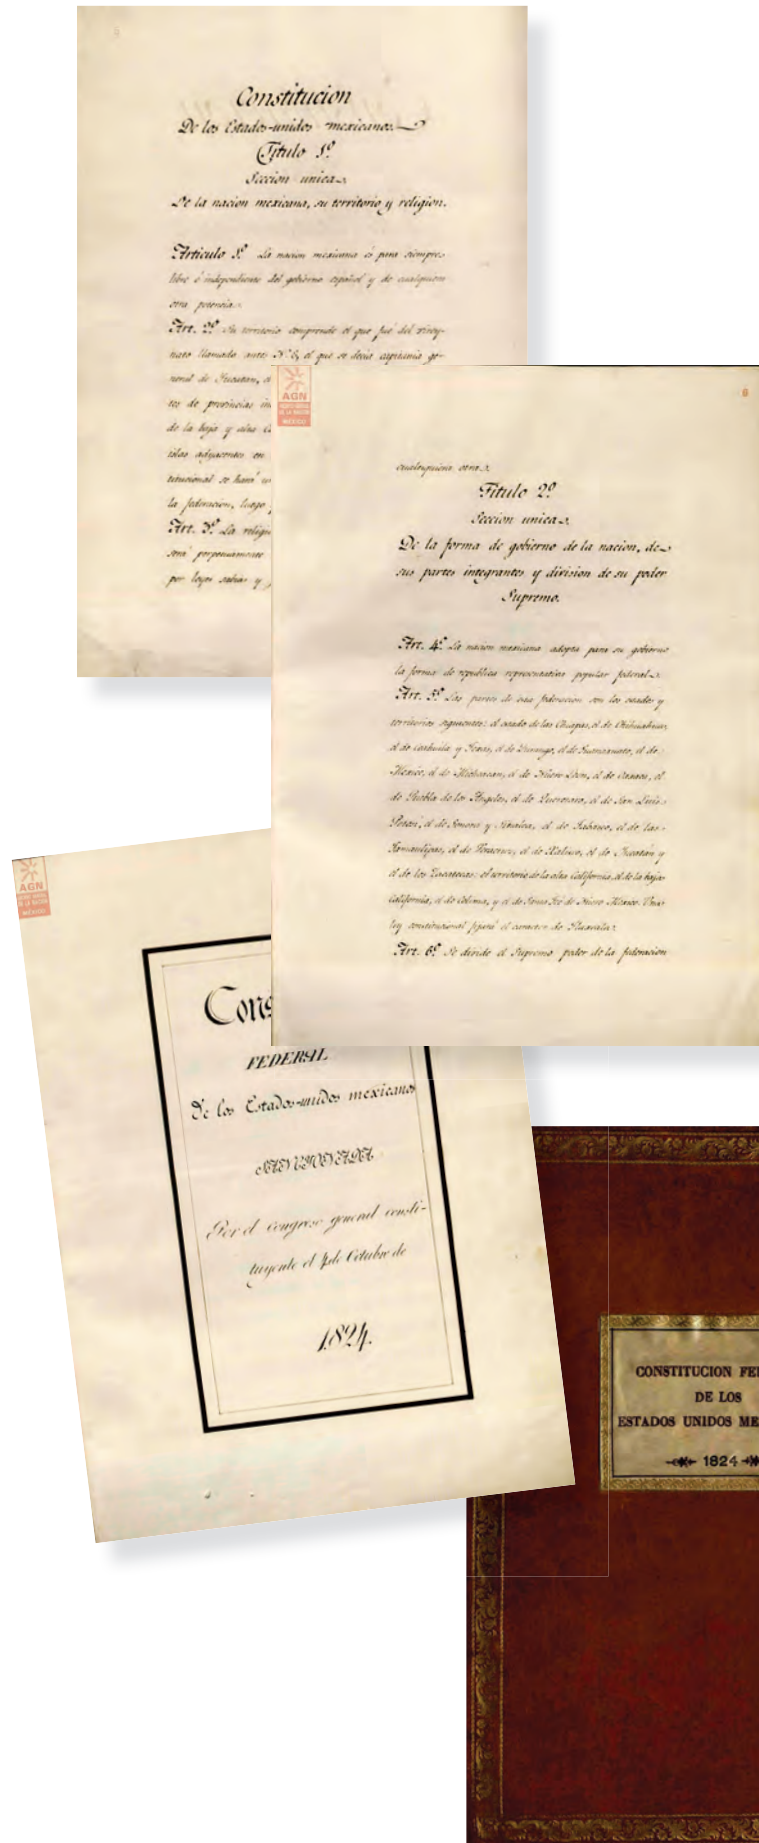 Constitucion
De los Estados-unidos mexicanos.
Titulo 1º
Seccion unica.
De la nacion mexicana, su territorio y religion.
Articulo 1º La nacion mexicana es para siempre
libre é independiente del gobierno español y de cualquiera
otra potencia.
Art. 2º Su territorio comprende el que fué del virey-
nato llamado antes N. E., el que se decia capitania ge-
neral de Yucatan, 
tes de provincias in
de la baja y alta C
islas adyacentes en
titucional se hará u
la federacion, luego
Art. 3º La religi
será perpetuamente
por leyes sabias y
AGN
ARCHIVO GENERAL
DE LA NACIÓN
MÉXICO
cualesquiera otra.
Titulo 2º
Seccion unica.
De la forma de gobierno de la nacion, de
sus partes integrantes y division de su poder
Supremo.
Art. 4º La nacion mexicana adopta para su gobierno
la forma de republica representativa popular federal.
Art. 5º Las partes de esta federacion son los estados y
territorios siguientes: el estado de las Chiapas, el de Chihuahua,
el de Coahuila y Texas, el de Durango, el de Guanajuato, el de
Mexico, el de Michoacan, el de Nuevo Leon, el de Oaxaca, el
de Puebla de los Angeles, el de Queretaro, el de San Luis
Potosi, el de Sonora y Sinaloa, el de Tabasco, el de las
Tamaulipas, el de Veracruz, el de Xalisco, el de Yucatán y
el de los Zacatecas: el territorio de la alta California, el de la baja
California, el de Colima, y el de Santa Fe de Nuevo Mexico. Una
ley constitucional fijará el caracter de Tlaxcala.
Art. 6º Se divide el Supremo poder de la federacion
AGN
ARCHIVO GENERAL
DE LA NACIÓN
MÉXICO
Cons
FEDERAL
De los Estados-unidos mexicanos
SANCIONADA
Por el congreso general consti-
tuyente el 4 de Octubre de
1824.
CONSTITUCION FE
DE LOS
ESTADOS UNIDOS ME
1824